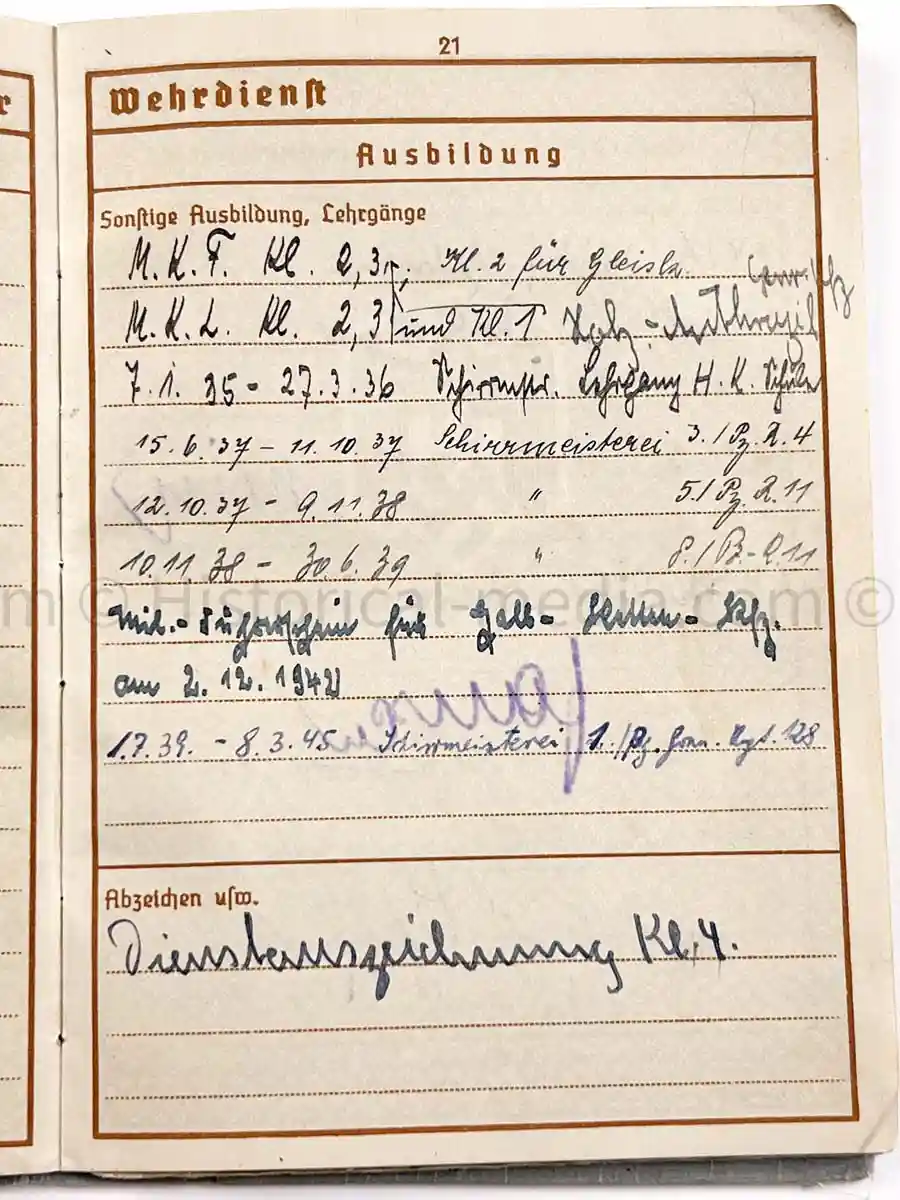 21
r
Wehrdienst
Ausbildung
Sonstige Ausbildung, Lehrgänge
M. K. F. Kl. 2, 3, ; Kl. 2 für Gleisk.
M. K. L. Kl. 2, 3 und Kl. 1 Holz -
7. 1. 35 - 27. 3. 36 Schirrmstr. Lehrgang H. K. Schule
15. 6. 37 - 11. 10. 37 Schirrmeisterei 3. / Pz. R. 4
12. 10. 37 - 9. 11. 38 " 5. / Pz. R. 11
10. 11. 38 - 30. 6. 39 " 8. / Pz. - R. 11
Mil. - Führerschein für Halb - Ketten - Kfz.
am 2. 12. 1942
1. 7. 39. - 8. 3. 45 Schirrmeisterei 1. / Pz. Gren. Rgt. 128
Abzeichen usw.
Dienstauszeichnung Kl. 4.
m © Historical-media.com ©